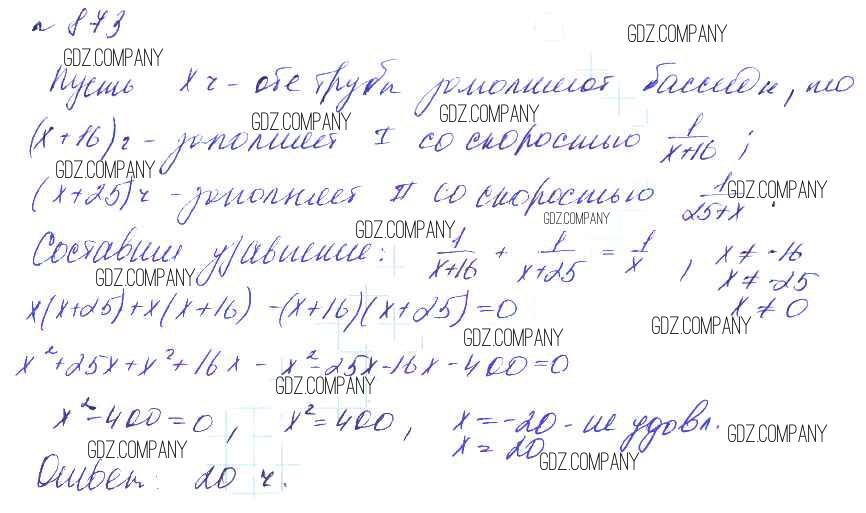 № 873
GDZ.COMPANY GDZ.COMPANY
Пусть x ч - обе трубы заполняют бассейн, то
GDZ.COMPANY GDZ.COMPANY
(x+16) ч - заполняет I со скоростью 1/(x+16) ;
GDZ.COMPANY GDZ.COMPANY
(x+25) ч - заполняет II со скоростью 1/(25+x) .
GDZ.COMPANY GDZ.COMPANY
Составим уравнение: 1/(x+16) + 1/(x+25) = 1/x , x ≠ -16
x ≠ -25
x ≠ 0
GDZ.COMPANY
x(x+25)+x(x+16) -(x+16)(x+25)=0
GDZ.COMPANY GDZ.COMPANY
x²+25x+x²+16x - x²-25x-16x-400=0
GDZ.COMPANY
x²-400=0, x²=400, x=-20 - не удовл.
x=20
GDZ.COMPANY GDZ.COMPANY GDZ.COMPANY
Ответ: 20 ч.